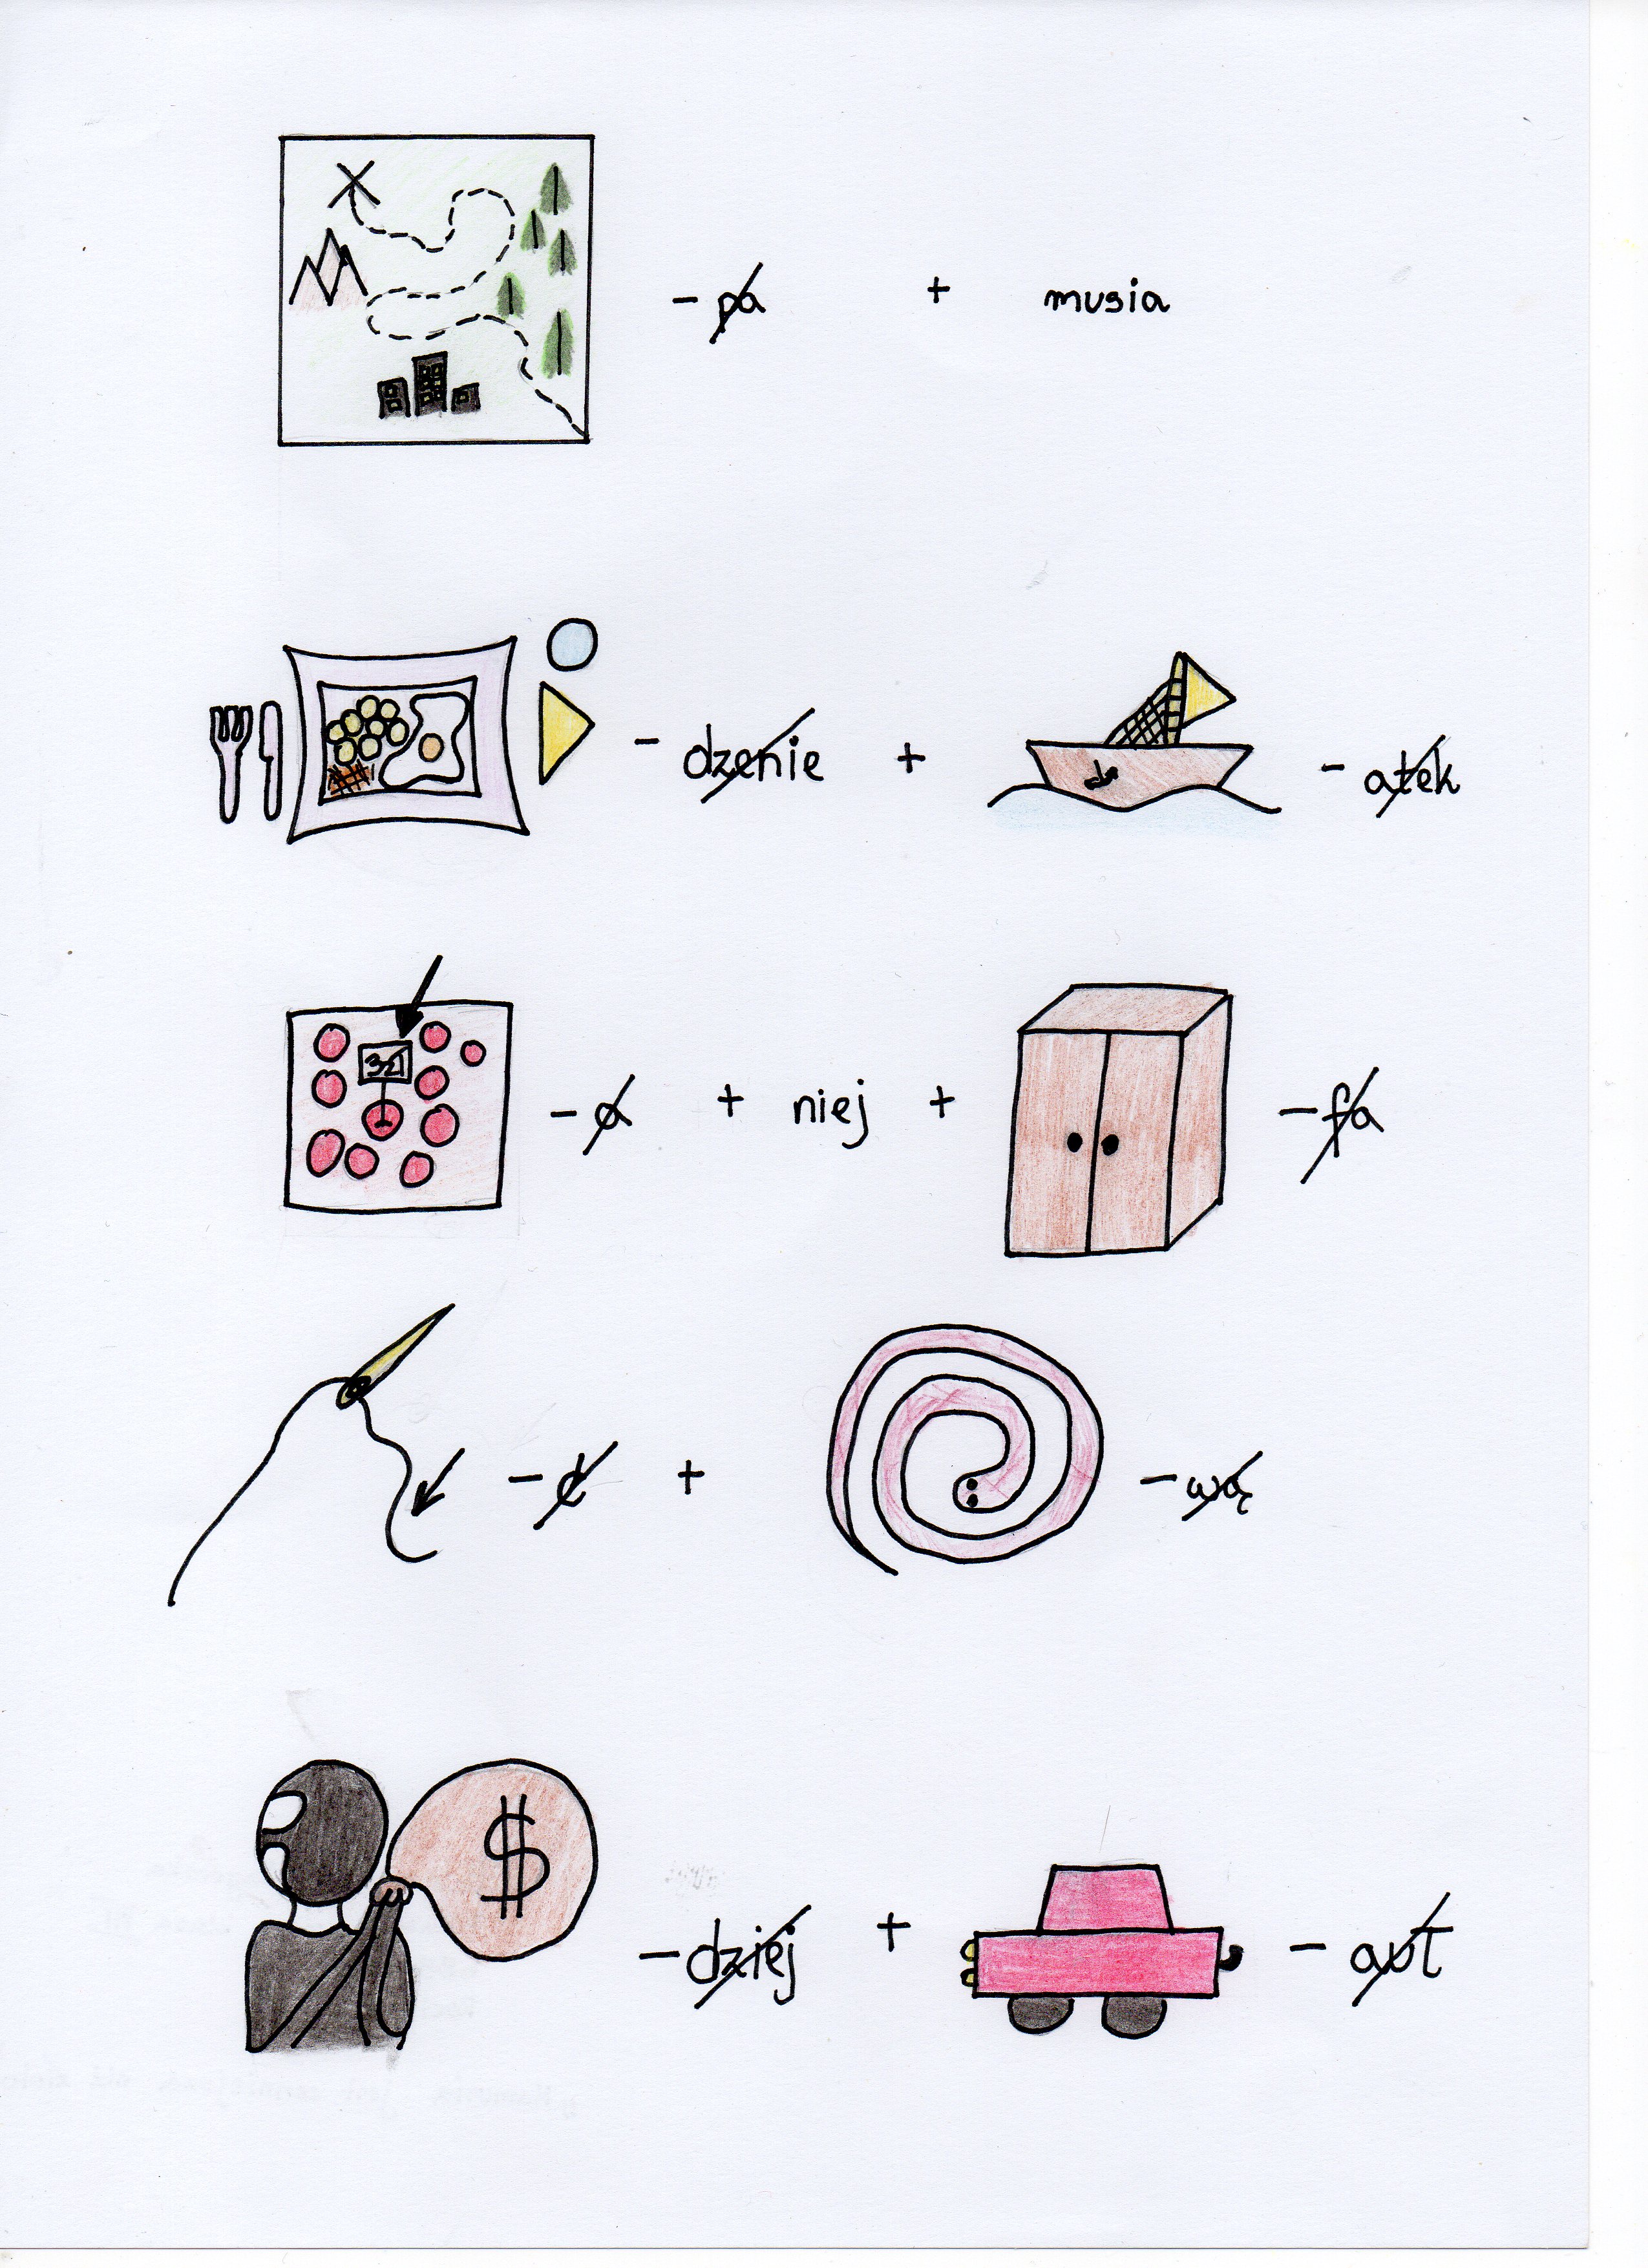 - pa + musia
- dzenie + - atek
3zł - a + niej + - fa
- ć + - wą
$ - dziej + - aut